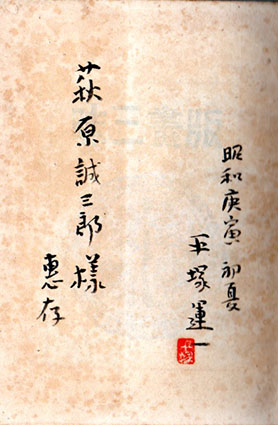 昭和庚寅 初夏
平塚運一
萩原誠三郎様
惠存